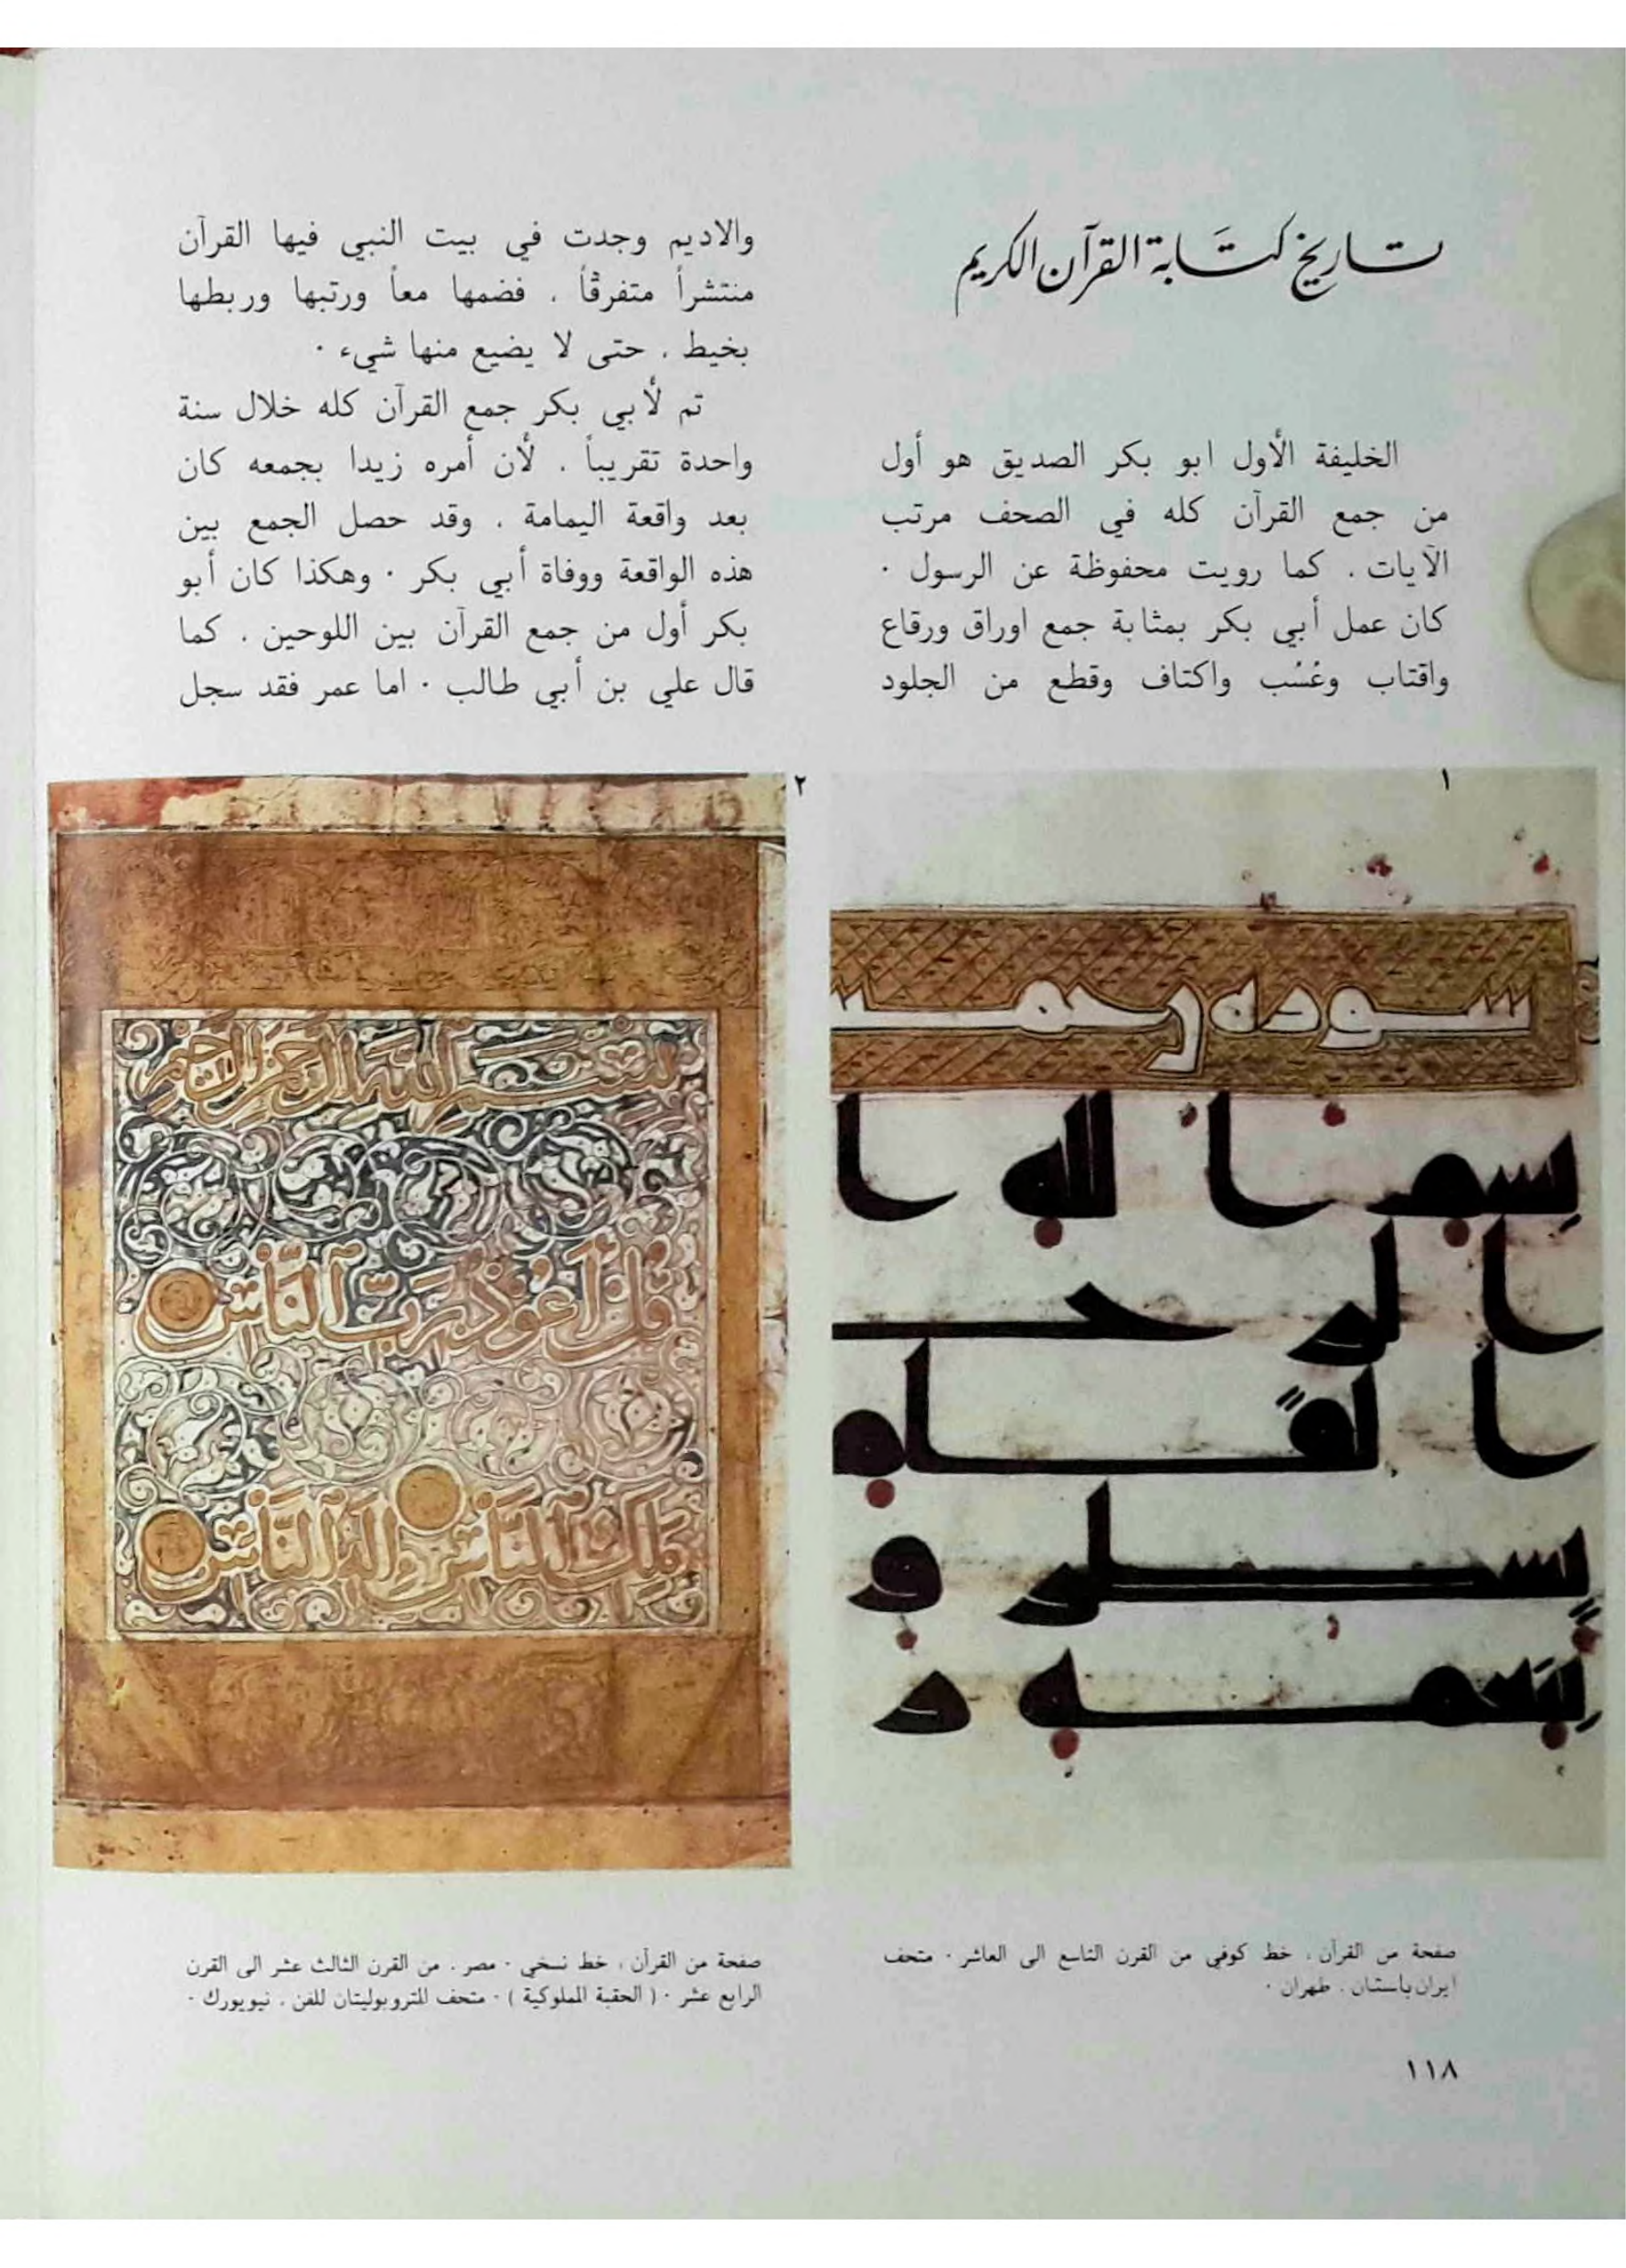 تاريخ كتابة القرآن الكريم
الخليفة الأول ابو بكر الصديق هو أول
من جمع القرآن كله في الصحف مرتب
الآيات ، كما رويت محفوظة عن الرسول ·
كان عمل أبي بكر بمثابة جمع اوراق ورقاع
واقتاب وعُسُب واكتاف وقطع من الجلود
والاديم وجدت في بيت النبي فيها القرآن
منتشراً متفرقاً ، فضمها معاً ورتبها وربطها
بخيط ، حتى لا يضيع منها شيء ·
تم لأبي بكر جمع القرآن كله خلال سنة
واحدة تقريباً ، لأن أمره زيدا بجمعه كان
بعد واقعة اليمامة ، وقد حصل الجمع بين
هذه الواقعة ووفاة أبي بكر · وهكذا كان أبو
بكر أول من جمع القرآن بين اللوحين ، كما
قال علي بن أبي طالب · اما عمر فقد سجل
١
٢
بسم الله الرحمن الرحيم
قُلْ أَعُوذُ بِرَبِّ ٱلنَّاسِ
مَلِكِ ٱلنَّاسِ إِلَٰهِ ٱلنَّاسِ
صفحة من القرآن ، خط كوفي من القرن التاسع الى العاشر · متحف
ايران باستان ، طهران ·
صفحة من القرآن ، خط نسخي · مصر ، من القرن الثالث عشر الى القرن
الرابع عشر · ( الحقبة المملوكية ) · متحف المتروبوليتان للفن ، نيويورك ·
١١٨